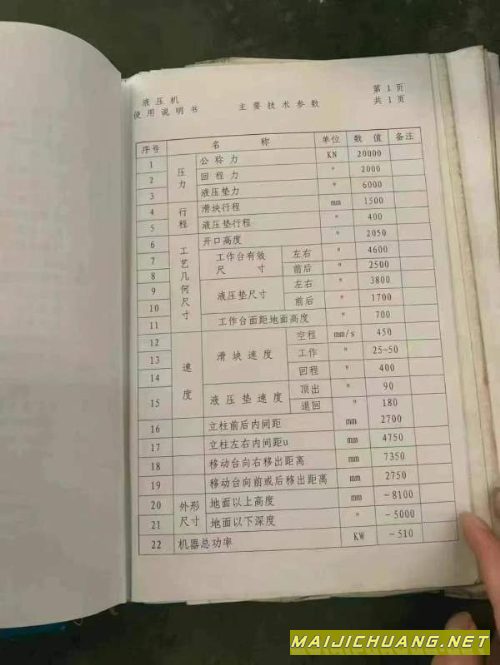 液压机
使用说明书 主要技术参数 第1页
共1页
序号 名称 单位 数值 备注
1 压力 公称力 KN 20000
2 回程力 " 2000
3 液压垫力 " 6000
4 行程 滑块行程 mm 1500
5 液压垫行程 " 400
6 工艺几何尺寸 开口高度 " 2050
7 工作台有效尺寸 左右 " 4600
8 前后 " 2500
9 液压垫尺寸 左右 " 3800
10 前后 " 1700
11 工作台面距地面高度 " 700
12 速度 滑块速度 空程 mm/s 450
13 工作 " 25~50
14 回程 " 400
15 液压垫速度 顶出 " 90
退回 " 180
16 立柱前后内间距 mm 2700
17 立柱左右内间距u mm 4750
18 移动台向右移出距离 mm 7350
19 移动台向前或后移出距离 mm 2750
20 外形尺寸 地面以上高度 mm ~8100
21 地面以下深度 " ~5000
22 机器总功率 KW ~510
MAIJICHUANG.NET